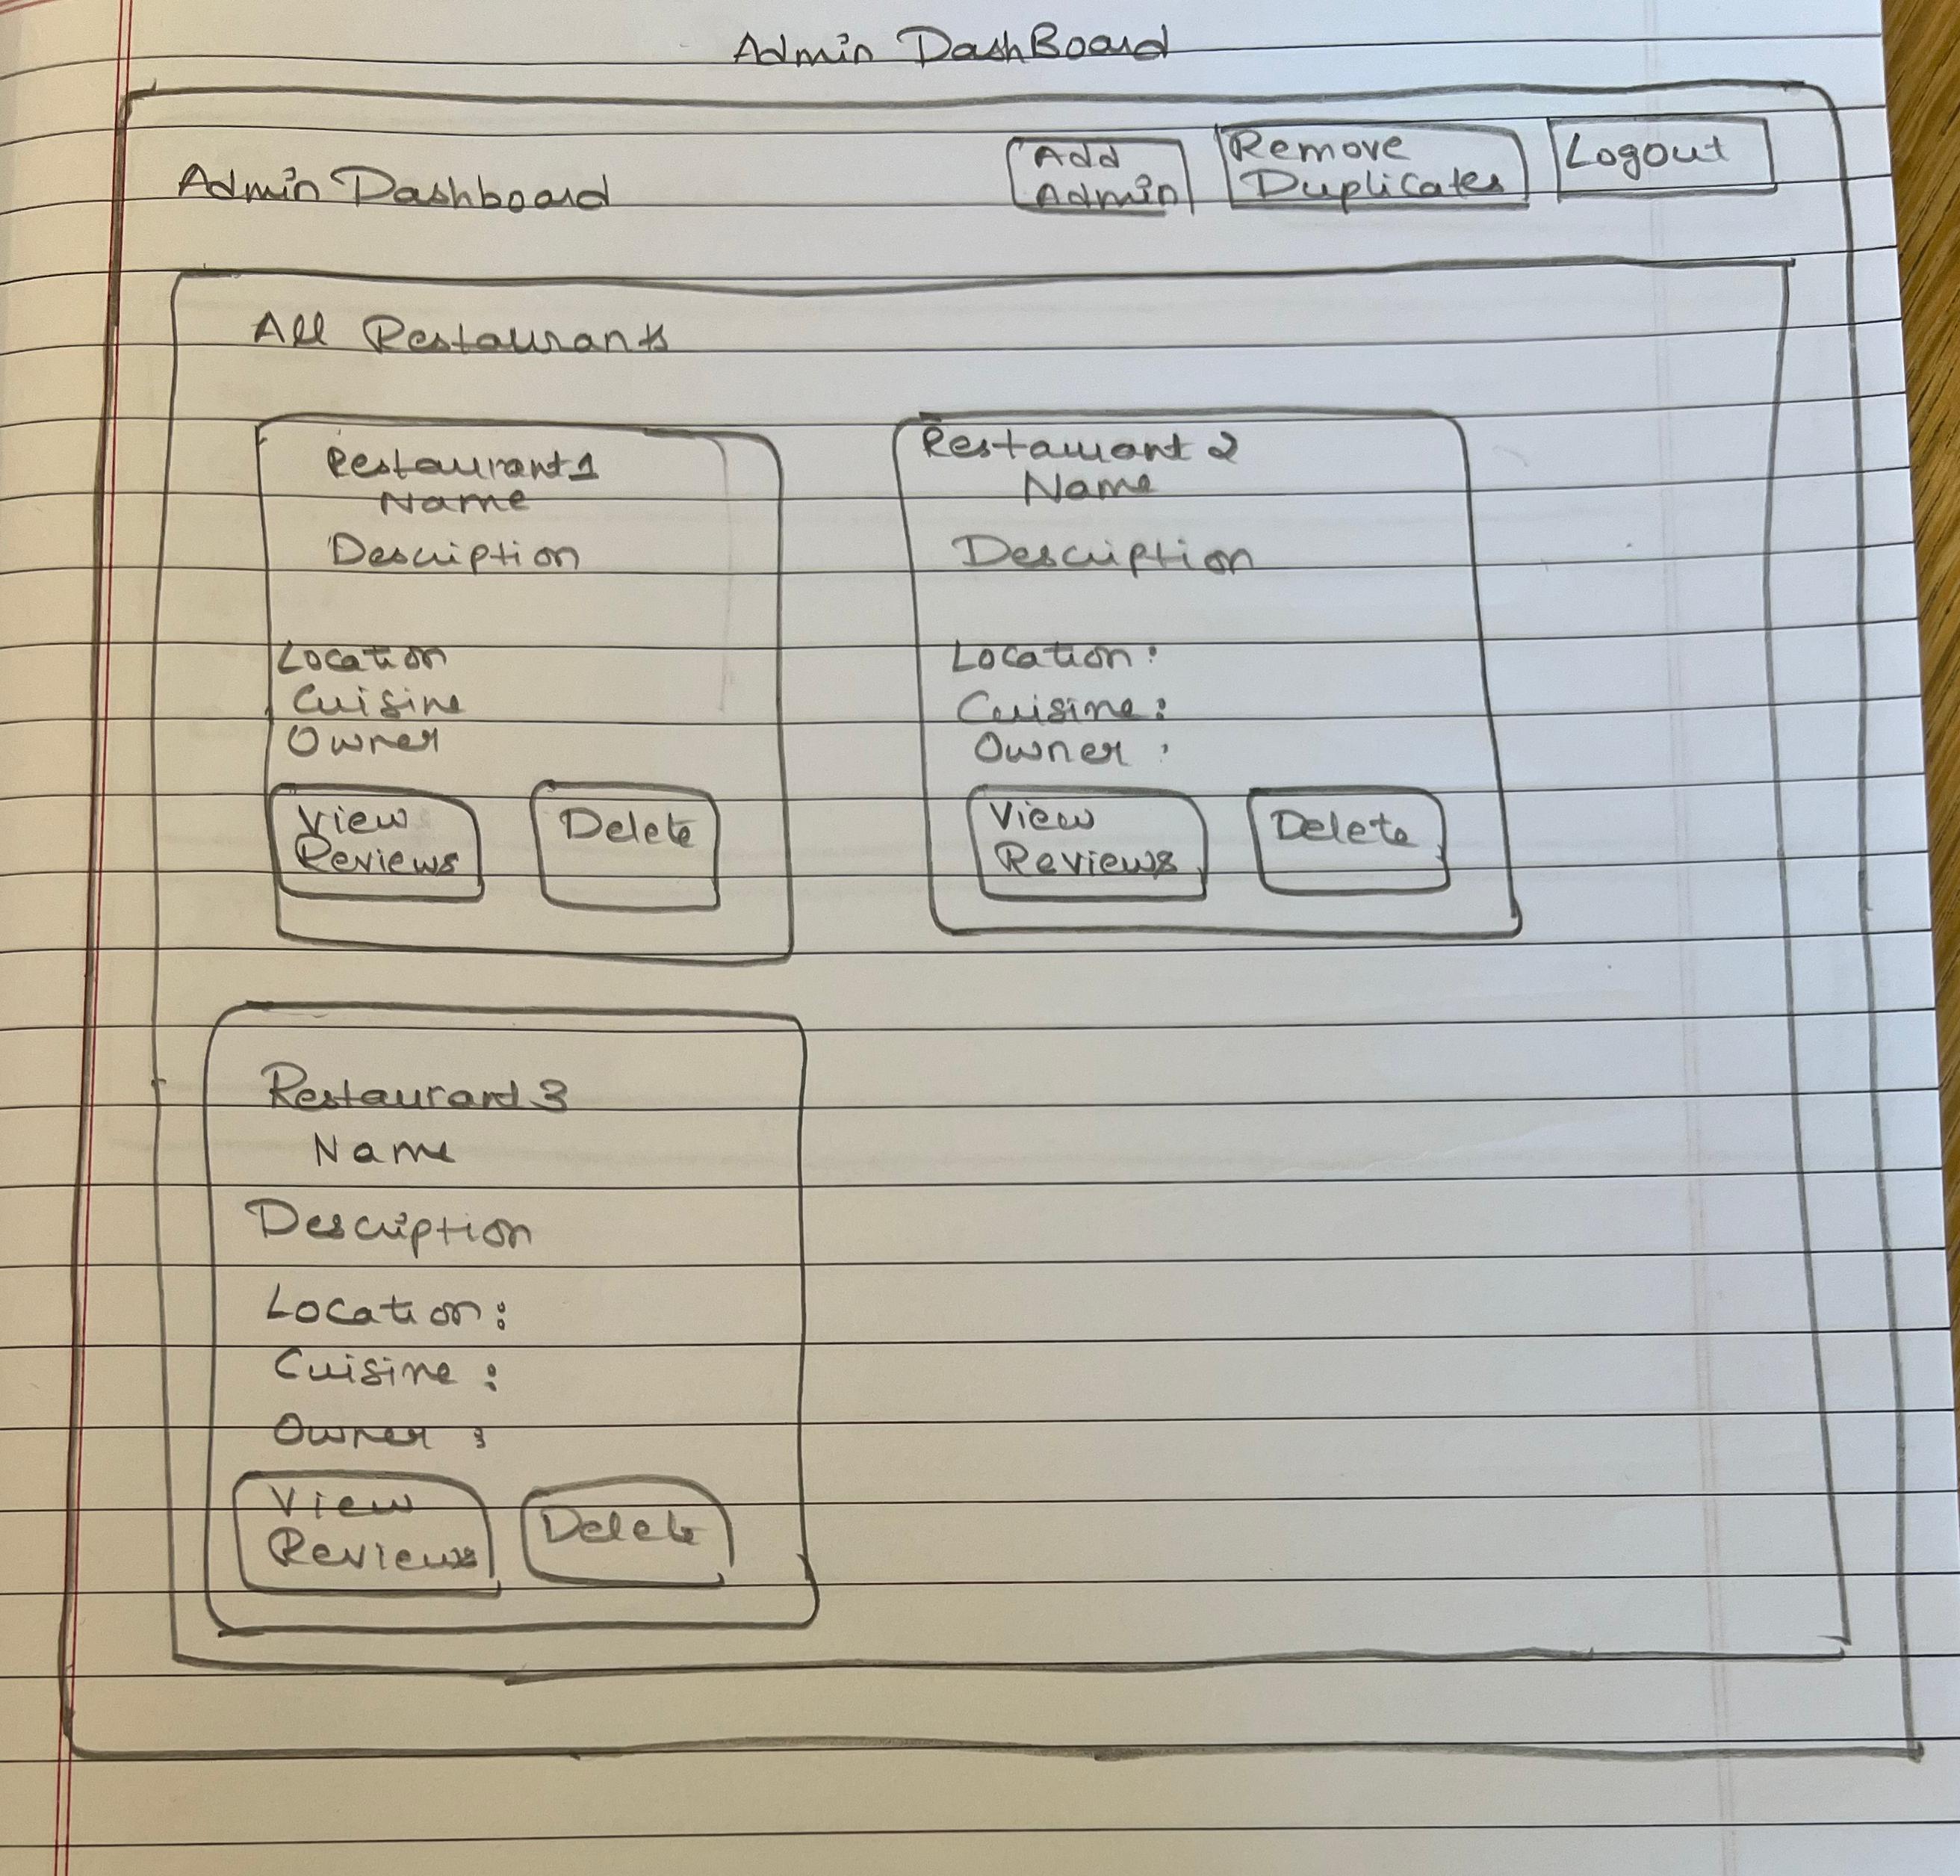 Admin DashBoard
Admin Dashboard
Add
Admin
Remove
Duplicates
Logout
All Restaurants
Restaurant1
Name
Description
Location
Cuisine
Owner
View
Reviews
Delete
Restaurant 2
Name
Description
Location:
Cuisine:
Owner :
View
Reviews
Delete
Restaurant 3
Name
Description
Location:
Cuisine :
Owner :
View
Reviews
Delete